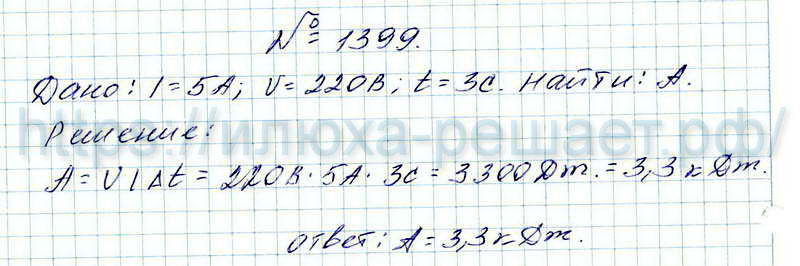 № 1399.
Дано: I = 5А; U = 220В; t = 3с. Найти: А.
https://илюха-решает.рф/
Решение:
A = UIΔt = 220В · 5А · 3с = 3300 Дж. = 3,3 кДж.
ответ: А = 3,3 кДж.